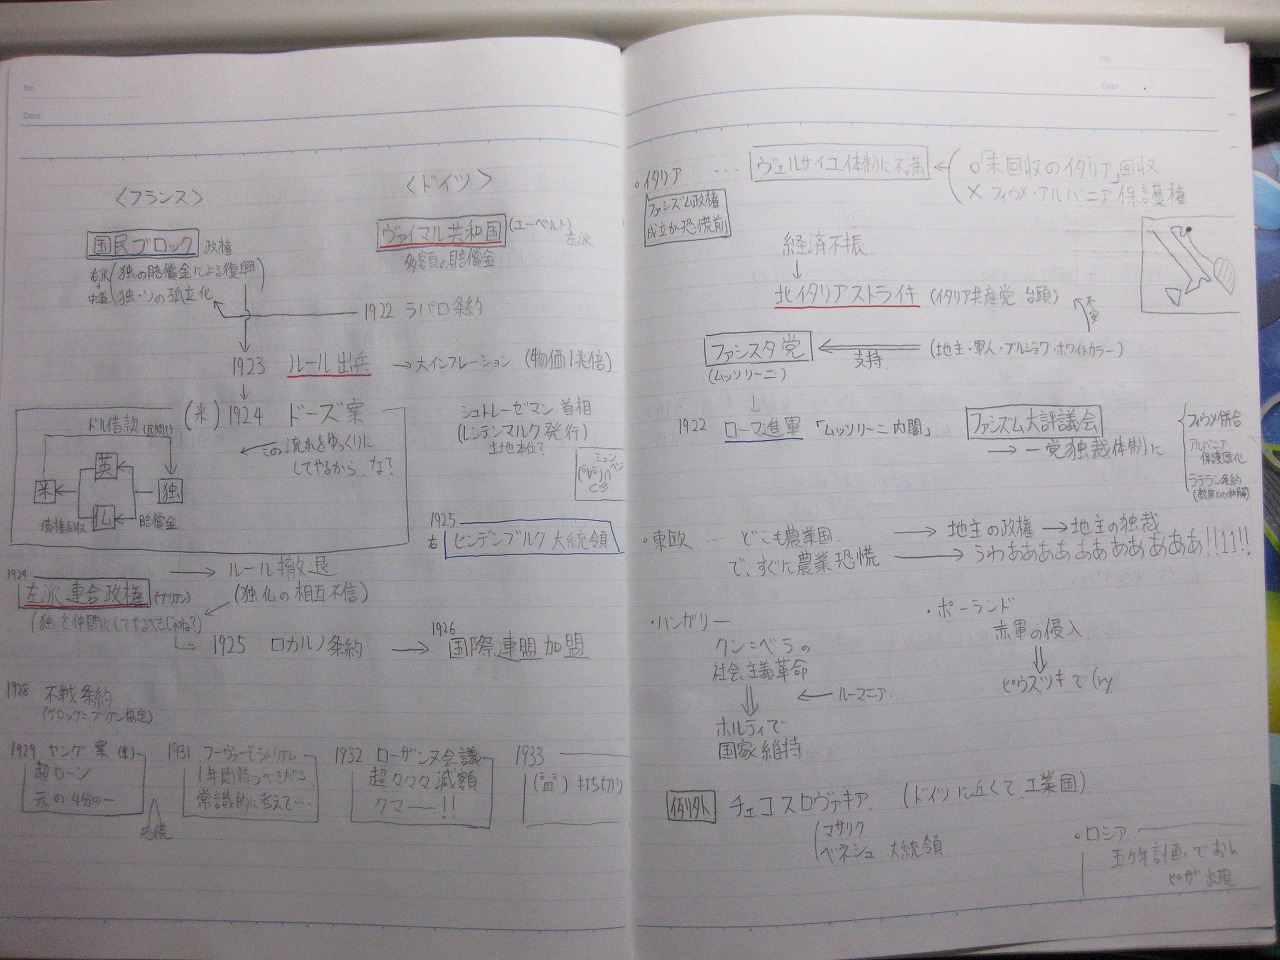 No.
Date
〈フランス〉
国民ブロック 政権
右派+中道
独の賠償金による復興
独・ソの孤立化
〈ドイツ〉
ヴァイマル共和国 (エーベルト) 左派
多額の賠償金
1922 ラパロ条約
1923 ルール出兵 → 大インフレーション (物価1兆倍)
(米) 1924 ドーズ案
この流れをゆっくりにしてやるから、な?
ドル借款
英
米
独
仏
債権回収
賠償金
シュトレーゼマン 首相
(レンテンマルク 発行)
土地本位?
ミュンヘン
1925
右 ヒンデンブルク 大統領
→ ルール撤退
(独仏の相互不信)
1924
左派連合政権 (ブリアン)
(独を仲間にしてやるべきじゃね?)
1925 ロカルノ条約 → 1926 国際連盟加盟
1928 不戦条約
(ケロッグ=ブリアン協定)
1929 ヤング案 (米)
超カーン
元の4分の一
恐慌
1931 フーヴァーモラトリアム
1年間待つべきだろ
常識的に考えて…
1932 ローザンヌ会議
超クマクマ減額
クマ――!!
1933
打ち切り
No.
Date
・イタリア … ヴェルサイユ体制に不満 ←
○「未回収のイタリア」回収
× フィウメ・アルバニア 保護権
ファシズム政権
成立が恐慌前
経済不振
↓
北イタリアストライキ (イタリア共産党 台頭)
不安
ファシスタ党 ← 支持 (地主・軍人・ブルジョワ・ホワイトカラー)
(ムッソリーニ)
↓
1922 ローマ進軍 「ムッソリーニ内閣」
ファシズム大評議会
→ 一党独裁体制に
フィウメ併合
アルバニア
保護国化
ラテラン条約
(教皇との和解)
・東欧 … どこも農業国 → 地主の政権 → 地主の独裁
で、すぐに農業恐慌 → うわあああああああああ!!11!!
・ハンガリー
クン=ベラの
社会主義革命
⇓ ← ルーマニア
ホルティで
国家維持
・ポーランド
赤軍の侵入
⇓
ピウスツキで(ry
チェコスロヴァキア (ドイツに近くて、工業国)
マサリク
ベネシュ 大統領
・ロシア
五ヶ年計画で
出現